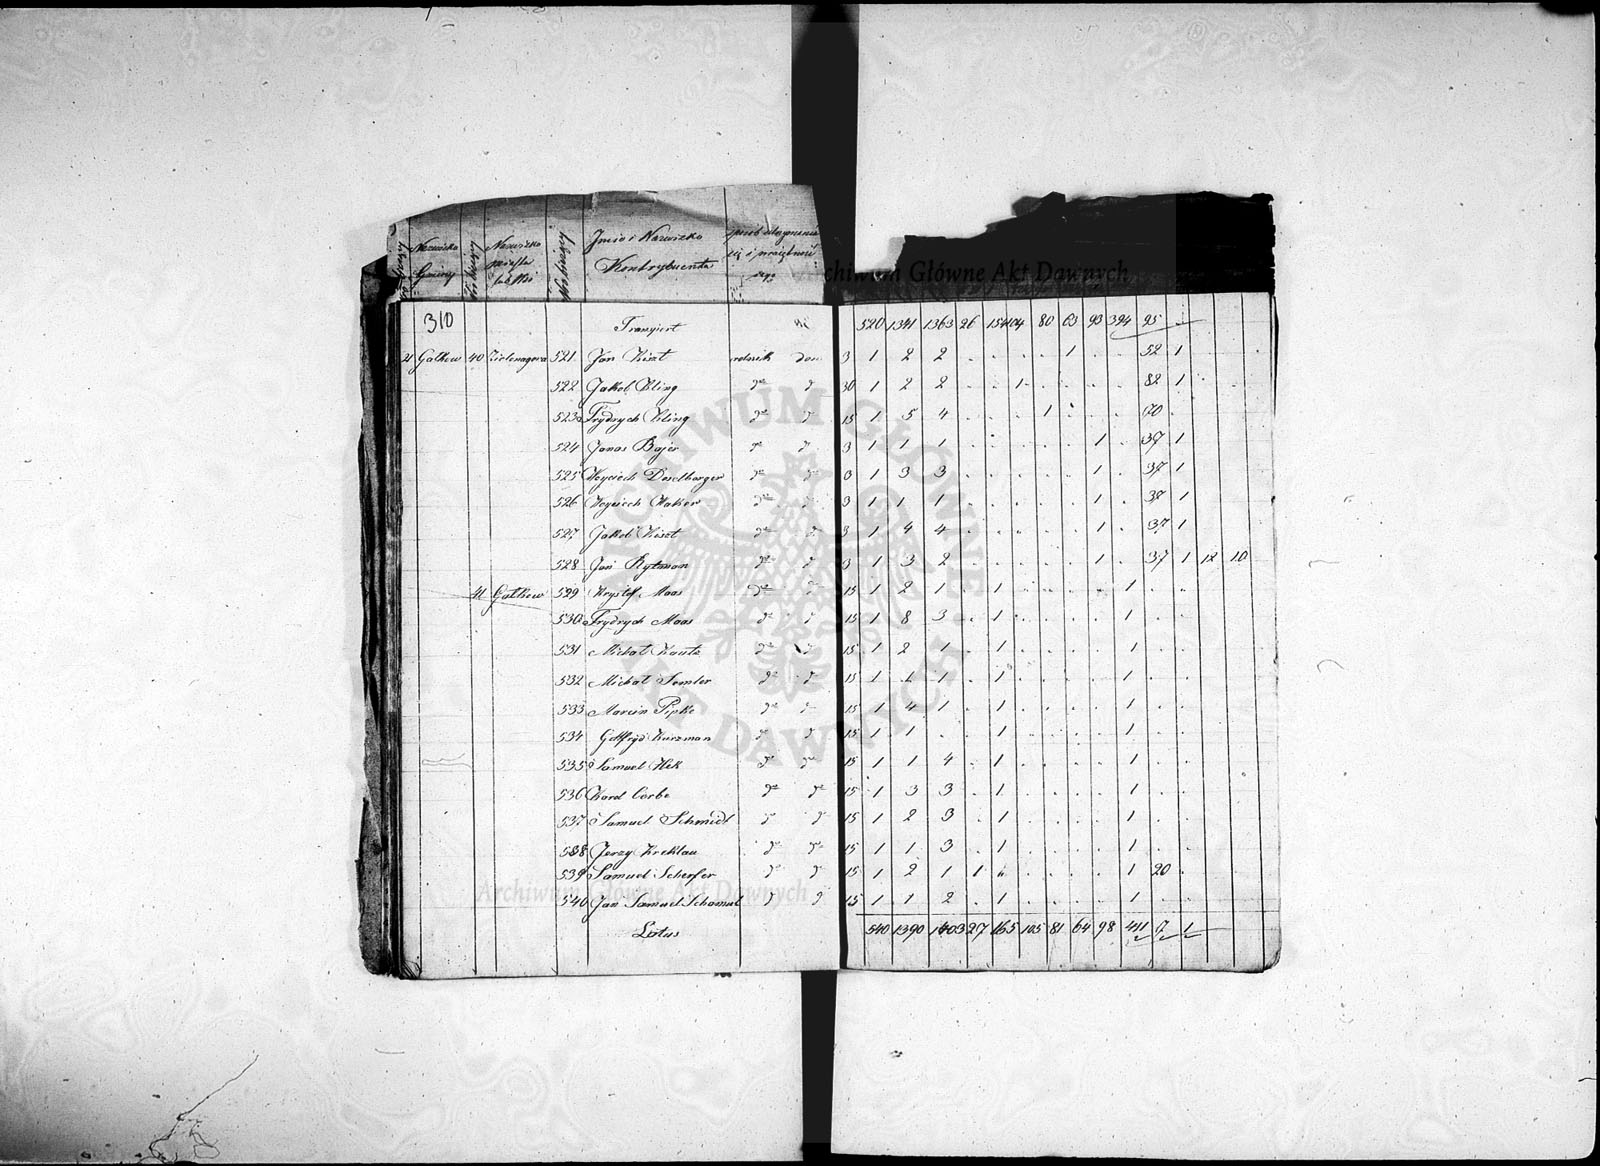 Nazwisko Gminy Nazwisko Imie i Nazwisko
Kontrybuenta
310 Transiert 520 1341 1363 26 154 104 80 63 93 394 95
21 Galkow 40 Zielonagora 521 Jan Kiszt rolnik dom 3 1 2 2 . . . . 1 . . 52 1
522 Jakob Kling do d 30 1 2 2 . . 1 . . . . 82 1
523 Frydrych Kling do d 15 1 5 4 . . . 1 . . . 70 .
524 Jonas Bajer do d 3 1 1 1 . . . . . 1 . 37 1
525 Woyciech Deselberger do d 3 1 3 3 . . . . . 1 . 37 1
526 Woyciech Haker do d 3 1 1 1 . . . . . 1 . 37 1
527 Jakob Kiszt do d 3 1 4 4 . . . . . 1 . 37 1
528 Jan Rytman do d 3 1 3 2 . . . . . 1 . 37 1 12 10
41 Galkow 529 Krysztof Maas do d 15 1 2 1 . 1 . . . . 1 . .
530 Frydrych Maas do d 15 1 8 3 . 1 . . . . 1 . .
531 Michał Kautz do d 15 1 2 1 . 1 . . . . 1 . .
532 Michał Semler do d 15 1 1 1 . 1 . . . . 1 . .
533 Marcin Pipke do d 15 1 4 1 . 1 . . . . 1 . .
534 Gottfryd Kurzman d d 15 1 1 . . 1 . . . . 1 . .
535 Samuel Hek do do 15 1 1 4 . 1 . . . . 1 . .
536 Karol Corbe do do 15 1 3 3 . 1 . . . . 1 . .
537 Samuel Schmidt d d 15 1 2 3 . 1 . . . . 1 . .
538 Jerzy Kreklau do do 15 1 1 3 . 1 . . . . 1 . .
539 Samuel Scherfer do d 15 1 2 1 1 . . . . 1 20 .
540 Jan Samuel d d 15 1 1 2 . 1 . . . . 1 . .
Latus 540 1390 1403 27 165 105 81 64 98 411 7 1
Archiwum Główne Akt Dawnych
ARCHIWUM GŁÓWNE AKT DAWNYCH
Archiwum Główne Akt Dawnych